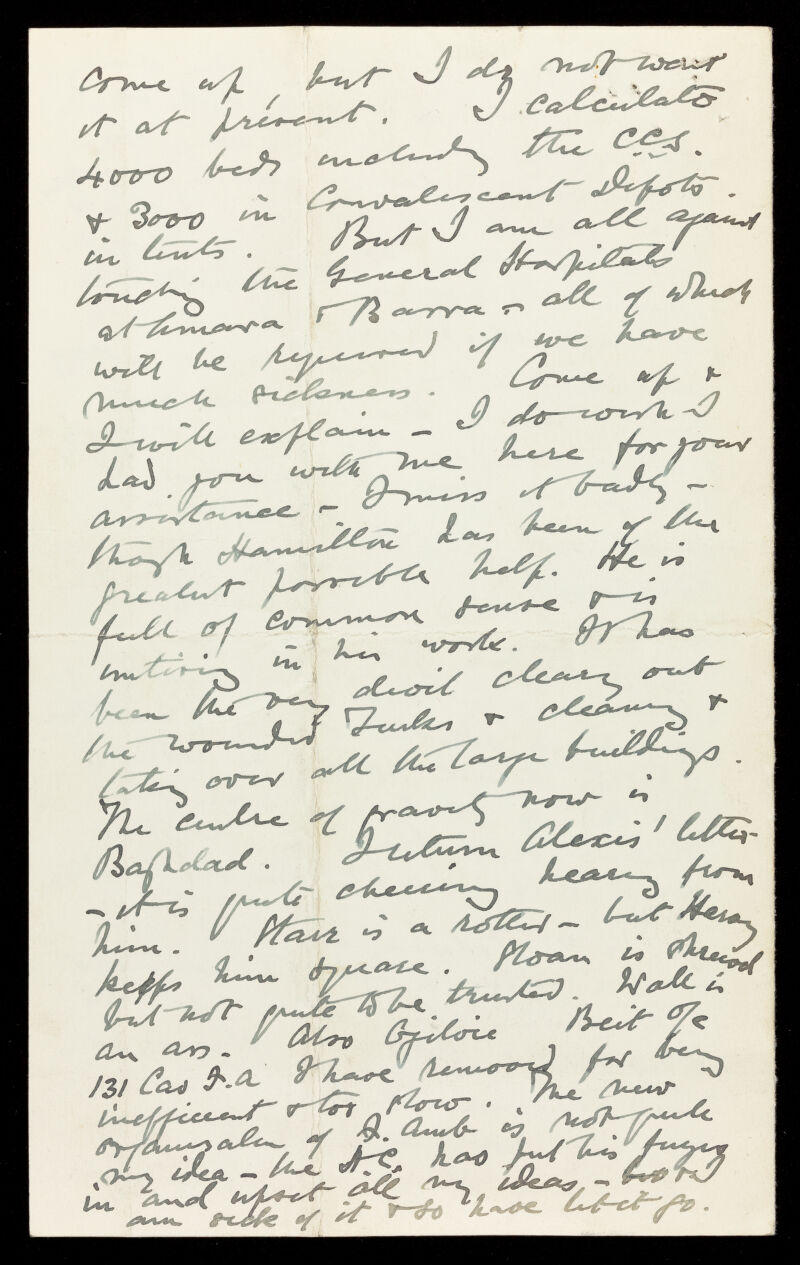 come up, but I do not want
it at present. I calculate
4000 beds including the CCS.
& 3000 in Convalescent Depots.
in tents. But I am all against
touching the General Hospitals
at Amara & Basra - all of which
will be required if we have
much sickness. Come up &
I will explain - I do wish I
had you with me here for your
assistance - I miss it badly -
though Hamilton has been of the
greatest possible help. He is
full of common sense & is
untiring in his work. It has
been the very devil clearing out
the wounded Turks & cleaning &
taking over all the large buildings.
The centre of gravity now is
Baghdad. I return Alexis' letter
- it is quite cheering hearing from
him. Starr is a rotter - but Hersey
keeps him square. Sloan is shrewd
but not quite to be trusted. Wall is
an ass. Also Ogilvie Beit
131 Cav F.A I have removed for being
inefficient & too slow. The new
organization of F. Amb is not quite
my idea - the AC. has put his fingers
in and upset all my ideas - but I
am sick of it & so have let it go.